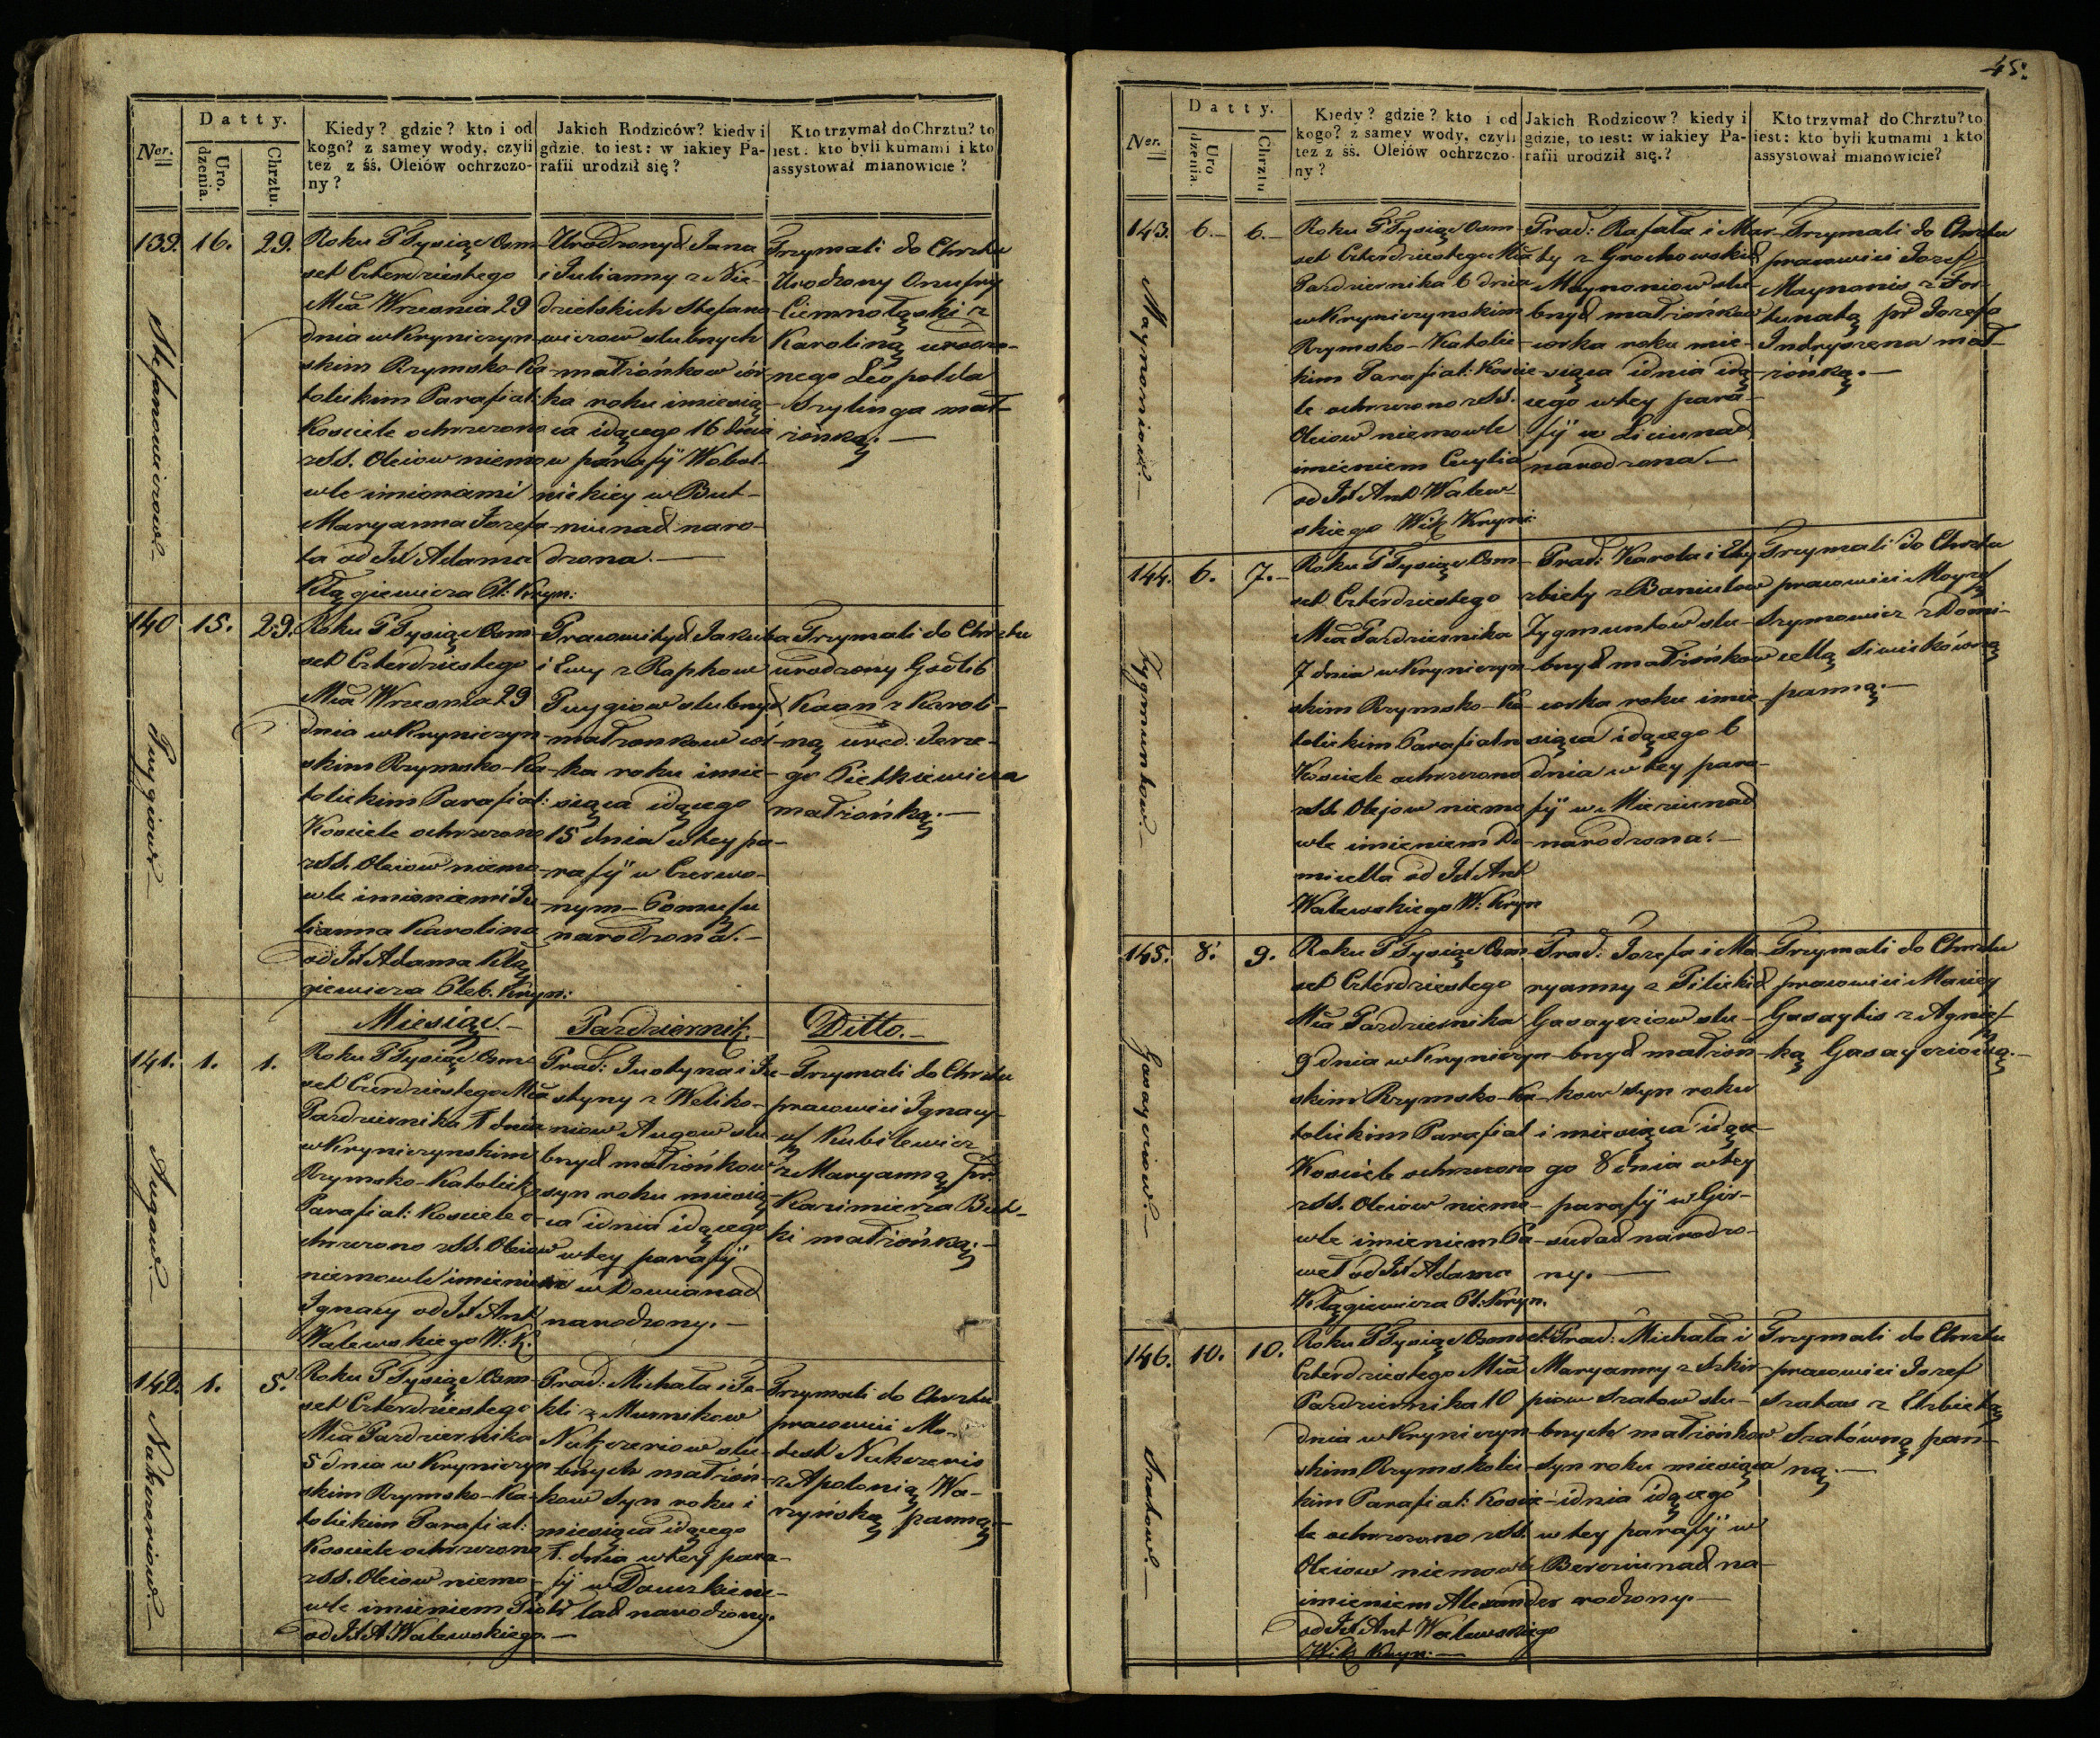 Datty.
Ner.
Uro.
dzenia.
Chrztu.
Kiedy? gdzie? kto i od
kogo? z samey wody, czyli
tez z śś. Oleiów ochrzczo-
ny?
Jakich Rodziców? kiedy i
gdzie, to iest: w iakiey Pa-
rafii urodził się?
Kto trzymał do Chrztu? to
iest: kto byli kumami i kto
assystował mianowicie?
139. 16. 29.
Stefanowiczow.
Roku P Tysiąc Osm-
set Czterdziestego
Mca Wrzesnia 29
dnia w Kryniczyn-
skim Rzymsko-Ka-
tolickim Parafial:
Kosciele ochrzczono
z SS. Oleiow niemo-
wle imionami
Maryanna Jozefa-
ta od Jd Adama
Kłągiewicza Pl: Kryn:
Urodzonych Jana
i Julianny z Nie-
dzielskich Stefano-
wiczow slubnych
małżonkow cór-
ka roku i miesią-
ca idącego 16 dnia
w parafij Wobol-
nickiey w But-
niunach naro-
dzona.
Trzymali do Chrztu
Urodzony Onufry
Ciemnołąski z
Karoliną urodzo-
nego Leopolda
Szylinga mał-
żonką.
140 15. 29.
Puygiow
Roku P Tysiąc Osm-
set Czterdziestego
Mca Wrzesnia 29
dnia w Krynicyn-
skim Rzymsko-Ka-
tolickim Parafial:
Kosciele ochrzczono
z SS. Oleiow niemo-
wle imionami Ju-
lianna Karolina
od Jd Adama Kłą-
giewicza Pleb. Kryn:
Pracowitych Jakuba
i Ewy z Rapkow
Puygiow slubnych
małżonkow cór-
ka roku i mie-
siąca idącego
15 dnia w tey pa-
rafij w Czerwo-
nym-Pomusu
narodzona.
Trzymali do Chrztu
urodzony Gotlib
Kaan z Karoli-
ną urod. Jerze-
go Pietkiewicza
małżonką.
Miesiąc. Pazdziernik. Ditto.
141. 1. 1.
Augow.
Roku P Tysiąc Osm-
set Czterdziestego Mca
Pazdziernika 1 dnia
w Krynicyznskim
Rzymsko-Katolick
Parafial: Kosciele o-
chrzczono z SS. Oleiow
niemowle imieniem
Ignacy od Jd Ant
Walewskiego W: K.
Prac: Justyna i Ju-
styny z Weliko-
niow Augow slu-
bnych małżonkow
syn roku miesią-
ca i dnia idącego
w tey parafij
w Dowianach
narodzony.
Trzymali do Chrztu
pracowici Ignacy
Kubilewicz
z Maryanną pr.
Kazimierza But-
ki małżonką.
142. 1. 5.
Nakczeniow.
Roku P Tysiąc Osm-
set Czterdziestego
Mca Pazdziernika
5 dnia w Krynicyn-
skim Rzymsko-Ka-
tolickim Parafial:
Kosciele ochrzczono
z SS. Oleiow niemo-
wle imieniem Piotr
od Jd A. Walewskiego.
Prac: Michała i Te-
kli z Murnikow
slu-
bnych małżon-
kow syn roku i
miesiąca idącego
1. dnia w tey para-
fij w Dauszkiem-
lach narodzony.
Trzymali do Chrztu
pracowici Mo-
dest
z Apolonią Wa-
rzyńską panną.
45.
Datty.
Ner.
Uro
dzenia.
Chrztu
Kiedy? gdzie? kto i od
kogo? z samey wody, czyli
tez z śś. Oleiów ochrzczo-
ny?
Jakich Rodzicow? kiedy i
gdzie, to iest: w iakiey Pa-
rafii urodził się.?
Kto trzymał do Chrztu? to
iest: kto byli kumami i kto
assystował mianowicie?
143. 6. 6.
Maynoniow.
Roku P Tysiąc Osm-
set Czterdziestego Mca
Pazdziernika 6 dnia
w Krynicyznskim
Rzymsko-Katolic-
kim Parafial: Koscie-
le ochrzczono z SS.
Oleiow niemowle
imieniem Cecylia
od Jd Ant Walew-
skiego Wik Kryni:
Prac: Rafała i Mar-
ty z Grochowskich
Maynoniow slu-
bnych małżonkow
corka roku mie-
siąca i dnia idą-
cego w tey para-
fij w Liciunach
narodzona.
Trzymali do Chrztu
pracowici Jozef
Maynonis z For-
tunatą pr Jozefa
Indryszena mał-
żonką.
144. 6. 7.
Zygmuntow.
Roku P Tysiąc Osm-
set Czterdziestego
Mca Pazdziernika
7 dnia w Krynicyn-
skim Rzymsko-Ka-
tolickim Parafialn
Kosciele ochrzczono
z SS. Olejow niemo
wle imieniem Do-
micella od Jd Ant
Walewskiego W: Kryn
Prac: Karola i Elż-
biety z Baniulow
Zygmuntow slu-
bnych małżonkow
corka roku i mie-
siąca idącego 6
dnia w tey para-
fij w Miciunach
narodzona.
Trzymali do Chrztu
pracowici Moyzes
Szymowicz z Domi-
cellą Siwickówną
panną.
145. 8. 9.
Gasayciow.
Roku P Tysiąc Osm-
set Czterdziestego
Mca Pazdziernika
9 dnia w Krynicyn-
skim Rzymsko-Ka-
tolickim Parafial
Kosciele ochrzczono
z SS. Oleiow niemo-
wle imieniem Pa-
weł od Jd Adama
Kłągiewicza Pl: Kryn.
Prac: Jozefa i Ma-
ryanny z Pilickich
Gasayciow slu-
bnych małżon-
kow syn roku
i miesiąca idące-
go 8 dnia w tey
parafij w Gir-
sudach narodzo-
ny.
Trzymali do Chrztu
pracowici Maciey
Gasaytis z Agnisz-
ką Gasayciową.
146. 10. 10.
Szatow.
Roku P Tysiąc Osmset
Czterdziestego Mca
Pazdziernika 10
dnia w Krynicyn-
skim Rzymskolic-
kim Parafial: Koscie-
le ochrzczono z SS.
Oleiow niemowle
imieniem Alexander
od Jd Ant Walewskiego
Wik Kryn:
Prac: Michała i
Maryanny z Szkir-
piow Szatow slu-
bnych małżonkow
syn roku miesiąca
i dnia idącego
w tey parafij w
Berzciunach na-
rodzony.
Trzymali do Chrztu
pracowici Jozef
Szatas z Elzbietą
Szatówną pan-
ną.